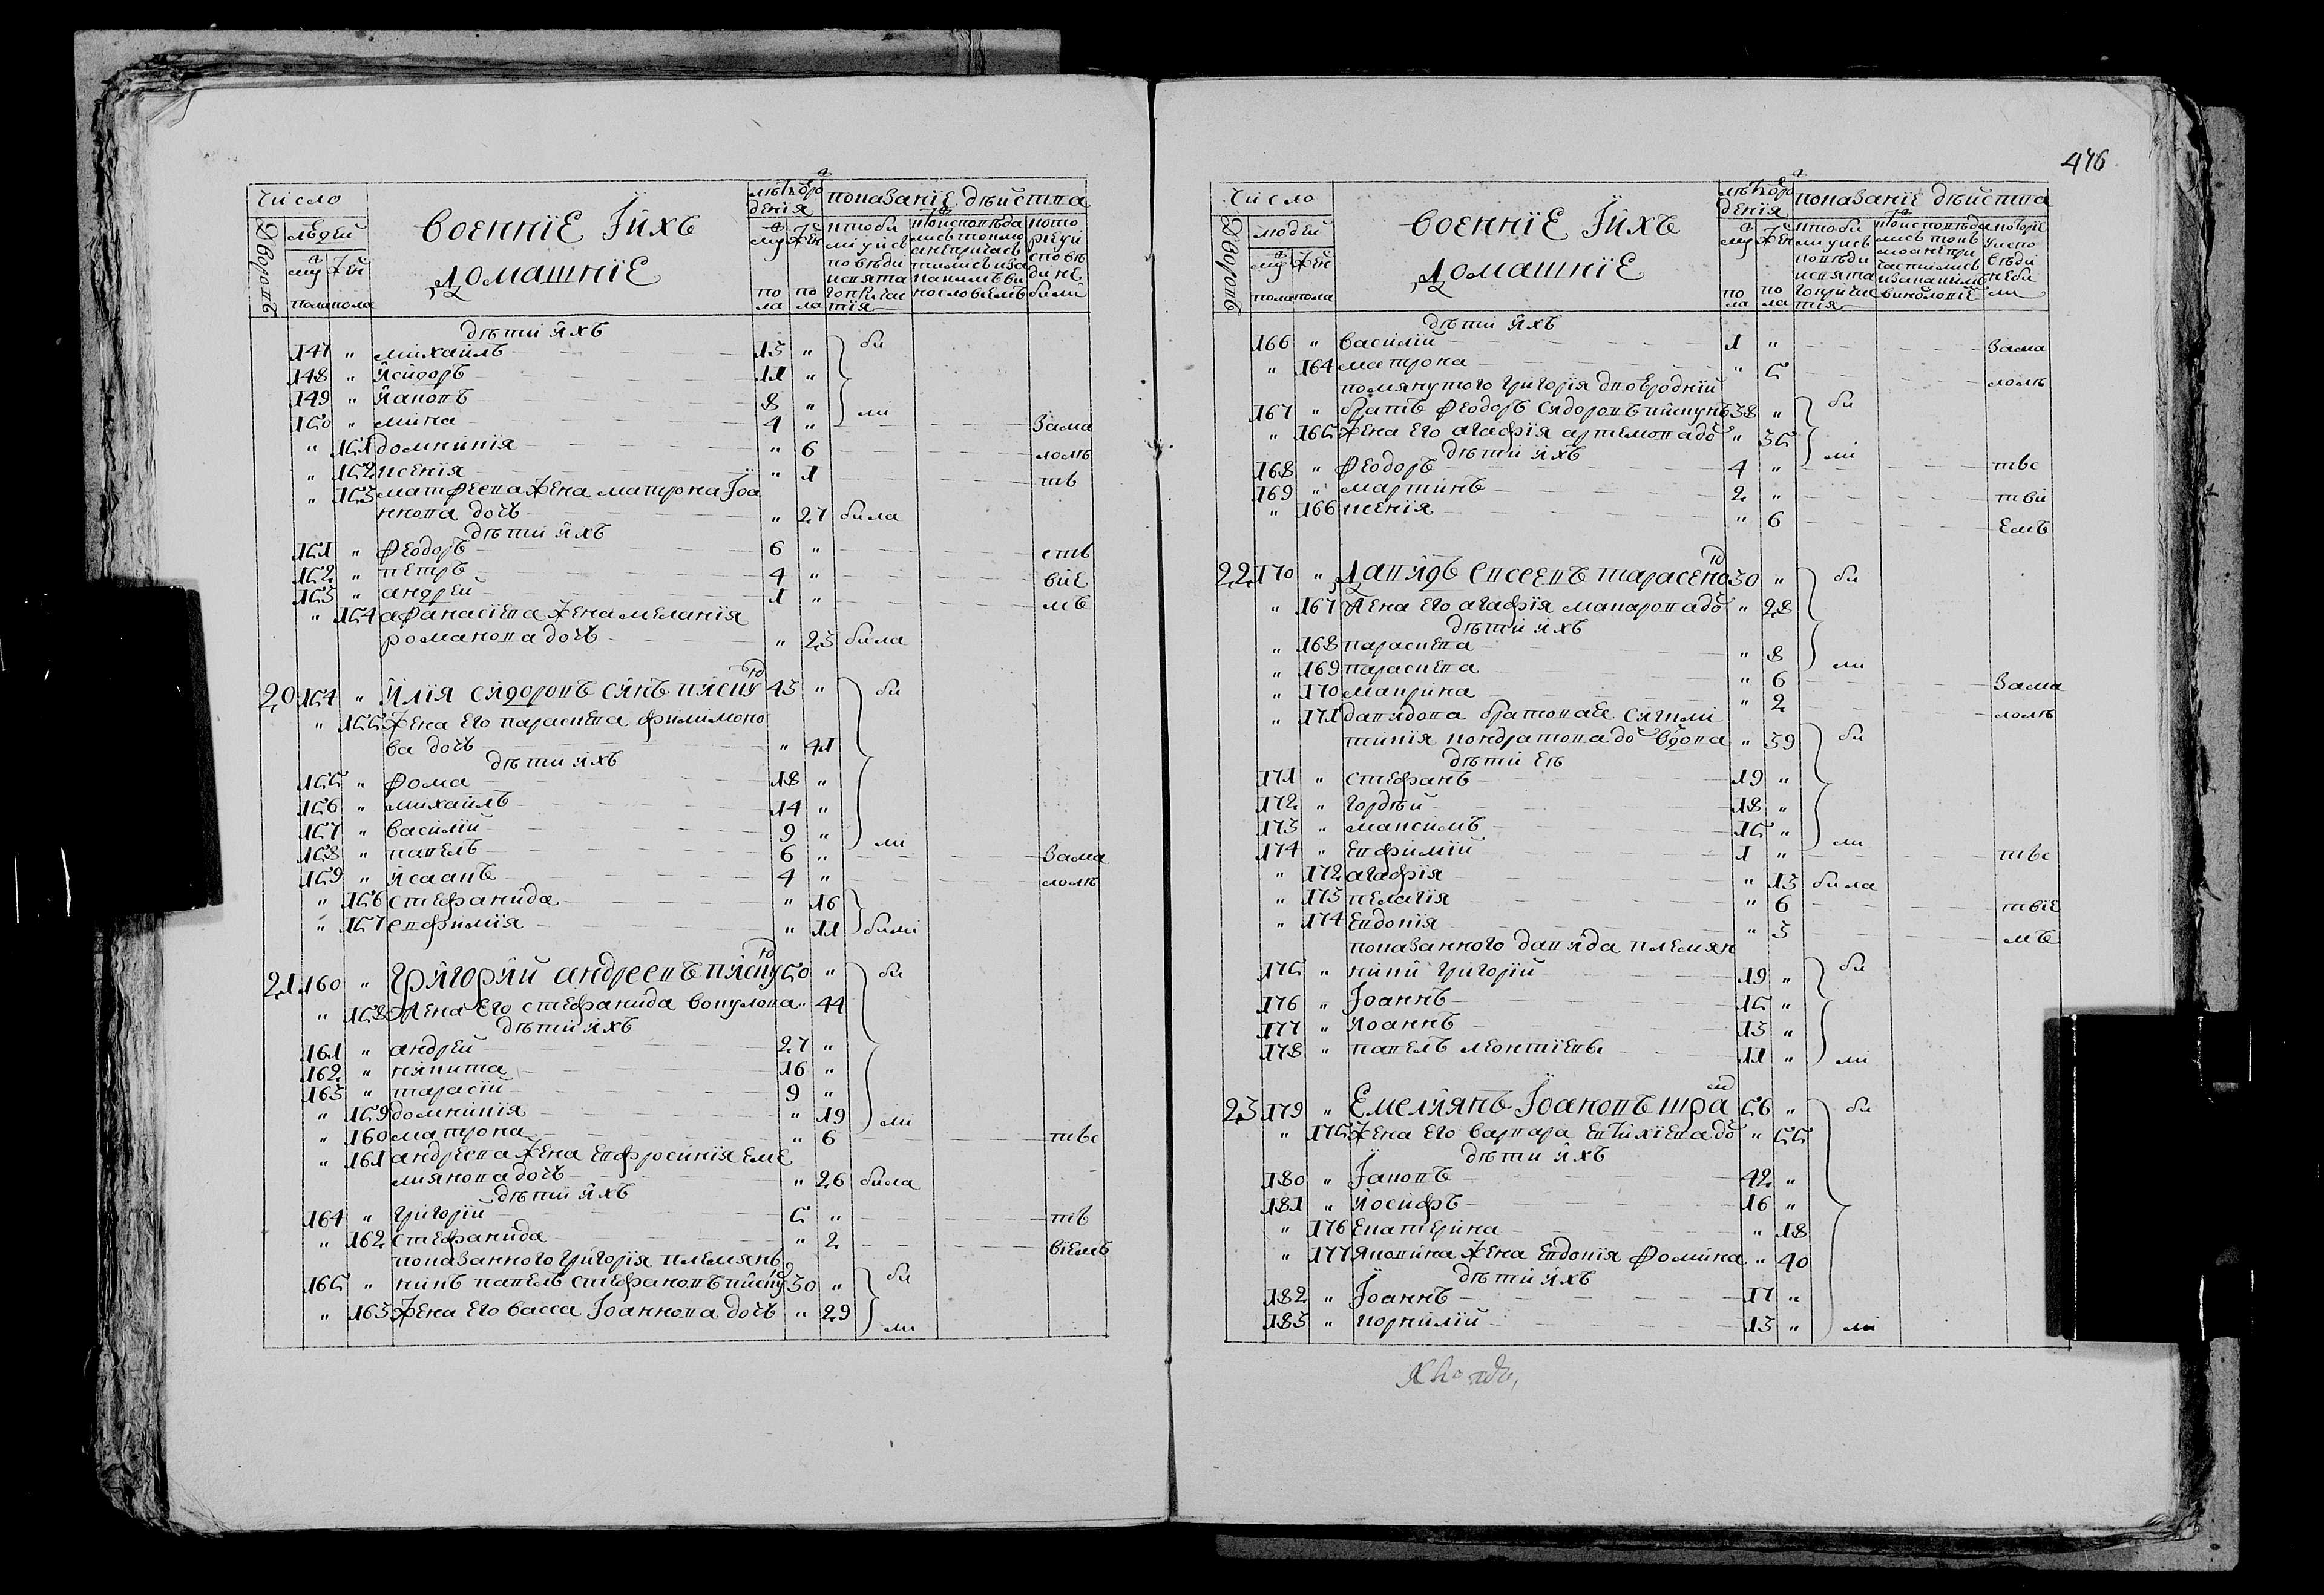 число
военнїе Їихъ
домашнїе
лѣтъ рожденїя
показанїе дѣиства
дворовъ
людей
муж жен
пола пола
по ла по ла
дѣти ихъ
147 " михаилъ 13 " би
148 " Исидоръ 11 "
149 " Яковъ 8 " ли
150 " мина 4 " Зама
" 151 домникия " 6 лолѣ
" 152 ксенїя " 1 тв
" 153 матфеева жена матрона Їоа
ннова дочь " 27 била
дѣти ихъ
151 " Феодоръ 6 " ств
152 " петръ 4 " вїе
153 " андрей 1 " мъ
" 154 афанасїева жена меланїя
романова дочь " 23 била
20 154 " Илїя сидоровъ синъ писку 43 " би
" 155 жена его параскева филимоно
ва дочь " 41
дѣти ихъ
155 " Фома 18 "
156 " михаилъ 14 "
157 " василїй 9 " ли
158 " павелъ 6 " Зама
159 " Исаакъ 4 " лолѣ
" 156 стефанида " 16
" 157 евфимїя " 11 били
21 160 " Григорїй андреевъ писку 50 " би
" 158 Жена его стефанида вокулова " 44
дѣти ихъ
161 " андрей 27 "
162 " никита 16 "
163 " тарасїй 9 "
" 159 домникїя " 19 ли
" 160 матрона " 6 твс
" 161 андреева жена евфросинїя еме
лиянова дочь " 26 била
дѣти ихъ
164 " григорїй 5 " тв
" 162 стефанида " 2 вїемъ
показанного григорїя племян
165 " никъ павелъ стефановъ писку 30 " би
" 163 жена его васса Їоаннова дочь " 29 ли
476
число
военнїе Їихъ
домашнїе
лѣтъ рожденїя
показанїе дѣиства
дворовъ
людей
муж жен
пола пола
по ла по ла
дѣти ихъ
166 " василїй 1 " Зама
" 164 матрона " 5 лолѣ
помянутого григорїя двоюроднїй
167 " братъ Феодоръ сидоровъ пискунъ 38 " би
" 165 жена его агафїя артемова доч " 35
дѣти ихъ ли
168 " Феодоръ 4 " твс
169 " мартинъ 2 " твїи
" 166 ксенїя " 6 емъ
22 170 " Давидъ евсеевъ тарасенко 30 " би
" 167 жена его агафїя макарова доч " 28
дѣти ихъ
" 168 параскева " 8 ли
" 169 параскева " 6 Зама
" 170 маврина " 2 лолѣ
" 171 давидова братовая сигкли
тикїя кондратова доч вдова " 39 би
дѣти еѣ
171 " стефанъ 19 "
172 " гордѣй 18 "
173 " максимъ 15 " ли
174 " евфимїй 1 " твс
" 172 агафїя " 13 била
" 173 пелагїя " 6 твїе
" 174 евдокїя " 3 мъ
показанного давида племян
175 " ники григорїй 19 " би
176 " Їоаннъ 15 "
177 " Иоаннъ 13 "
178 " павелъ леонтїеви 11 " ли
23 179 " Емелиянъ Їоановъ шра 56 " би
" 175 жена его варвара евтихїева доч " 55
дѣти ихъ
180 " Їаковъ 42 "
181 " Иосифъ 16 "
" 176 екатерина " 18
" 177 яковина жена евдокїя Фомина " 40
дѣти ихъ
182 " Їоаннъ 17 "
183 " корнилїй 13 " ли